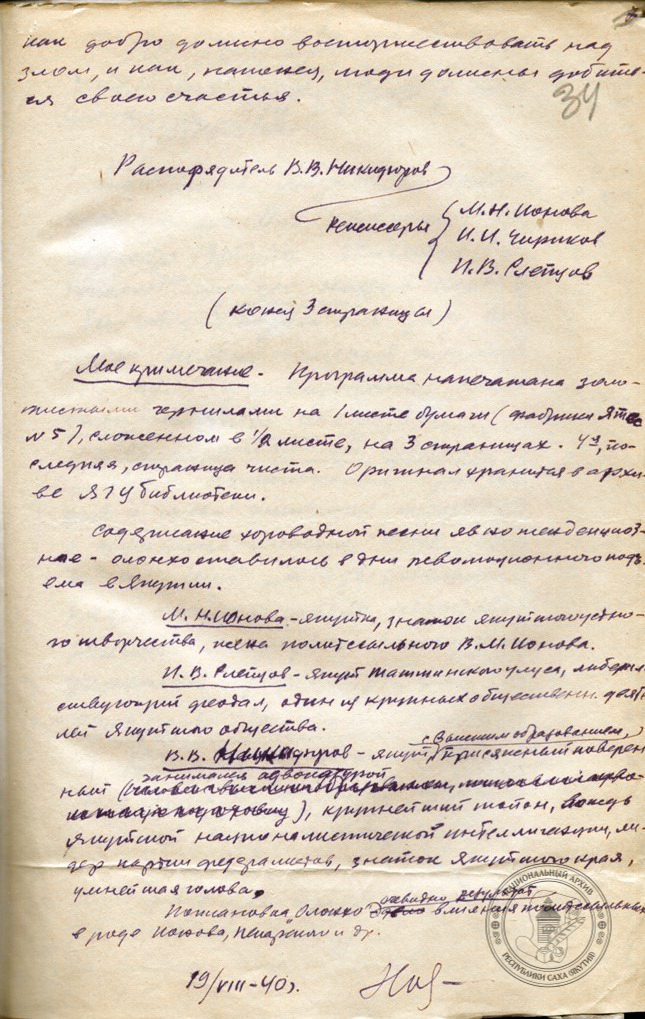 34
как добро должно восторжествовать над
злом, и как, наконец, люди должны добить-
ся своего счастья.
Распорядитель В.В. Никифоров
Режиссеры М.Н. Ионова
И.И. Чириков
И.В. Слепцов
(конец 3 страницы)
Мое примечание. Программа напечатана золо-
тистыми чернилами на 1 листе бумаги (фабрики
№ 5), сложенном в 1/2 листе, на 3 страницах. 4я, по-
следняя, страница чиста. Оригинал хранится в архи-
ве ЯГУ библиотеки.
Содержание хороводной песни явно тенденциоз-
ное - олонхо ставилось в дни революционного подъ-
ема в Якутии.
М.Н. Ионова - якутка, знаток якутского устно-
го творчества, жена политссыльного В.М. Ионова.
И.В. Слепцов - якут Таттинского улуса, либераль-
ствующий феодал, один из крупных обществен. деяте-
лей якутского общества.
с высшим образованием,
В.В. Никифоров - якут, присяжный поверен-
занимался адвокатурой
ный), крупнейший тойон, вождь
якутской националистической интеллигенции, ли-
дер партии федералистов, знаток якутского края,
умнейшая голова.
очевидно результат
Постановка "Олонхо влияния политссыльных
в роде Ионова, Пекарского и др.
19/VIII-40г.
НАЦИОНАЛЬНЫЙ АРХИВ
РЕСПУБЛИКИ САХА (ЯКУТИЯ)